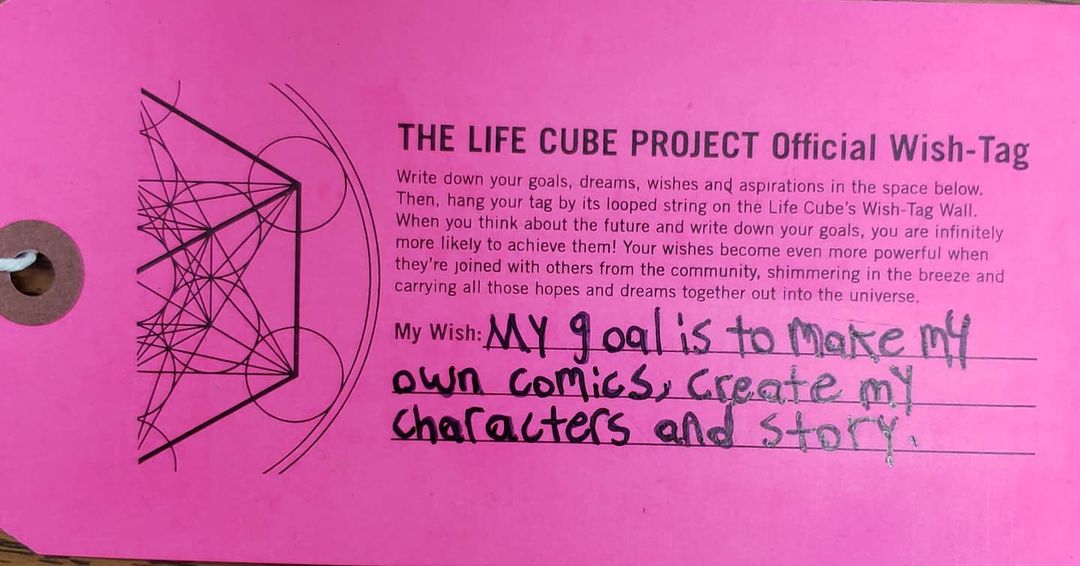 THE LIFE CUBE PROJECT Official Wish-Tag
Write down your goals, dreams, wishes and aspirations in the space below.
Then, hang your tag by its looped string on the Life Cube's Wish-Tag Wall.
When you think about the future and write down your goals, you are infinitely
more likely to achieve them! Your wishes become even more powerful when
they're joined with others from the community, shimmering in the breeze and
carrying all those hopes and dreams together out into the universe.
My Wish: MY goal is to make my
own comics, create my
characters and story.